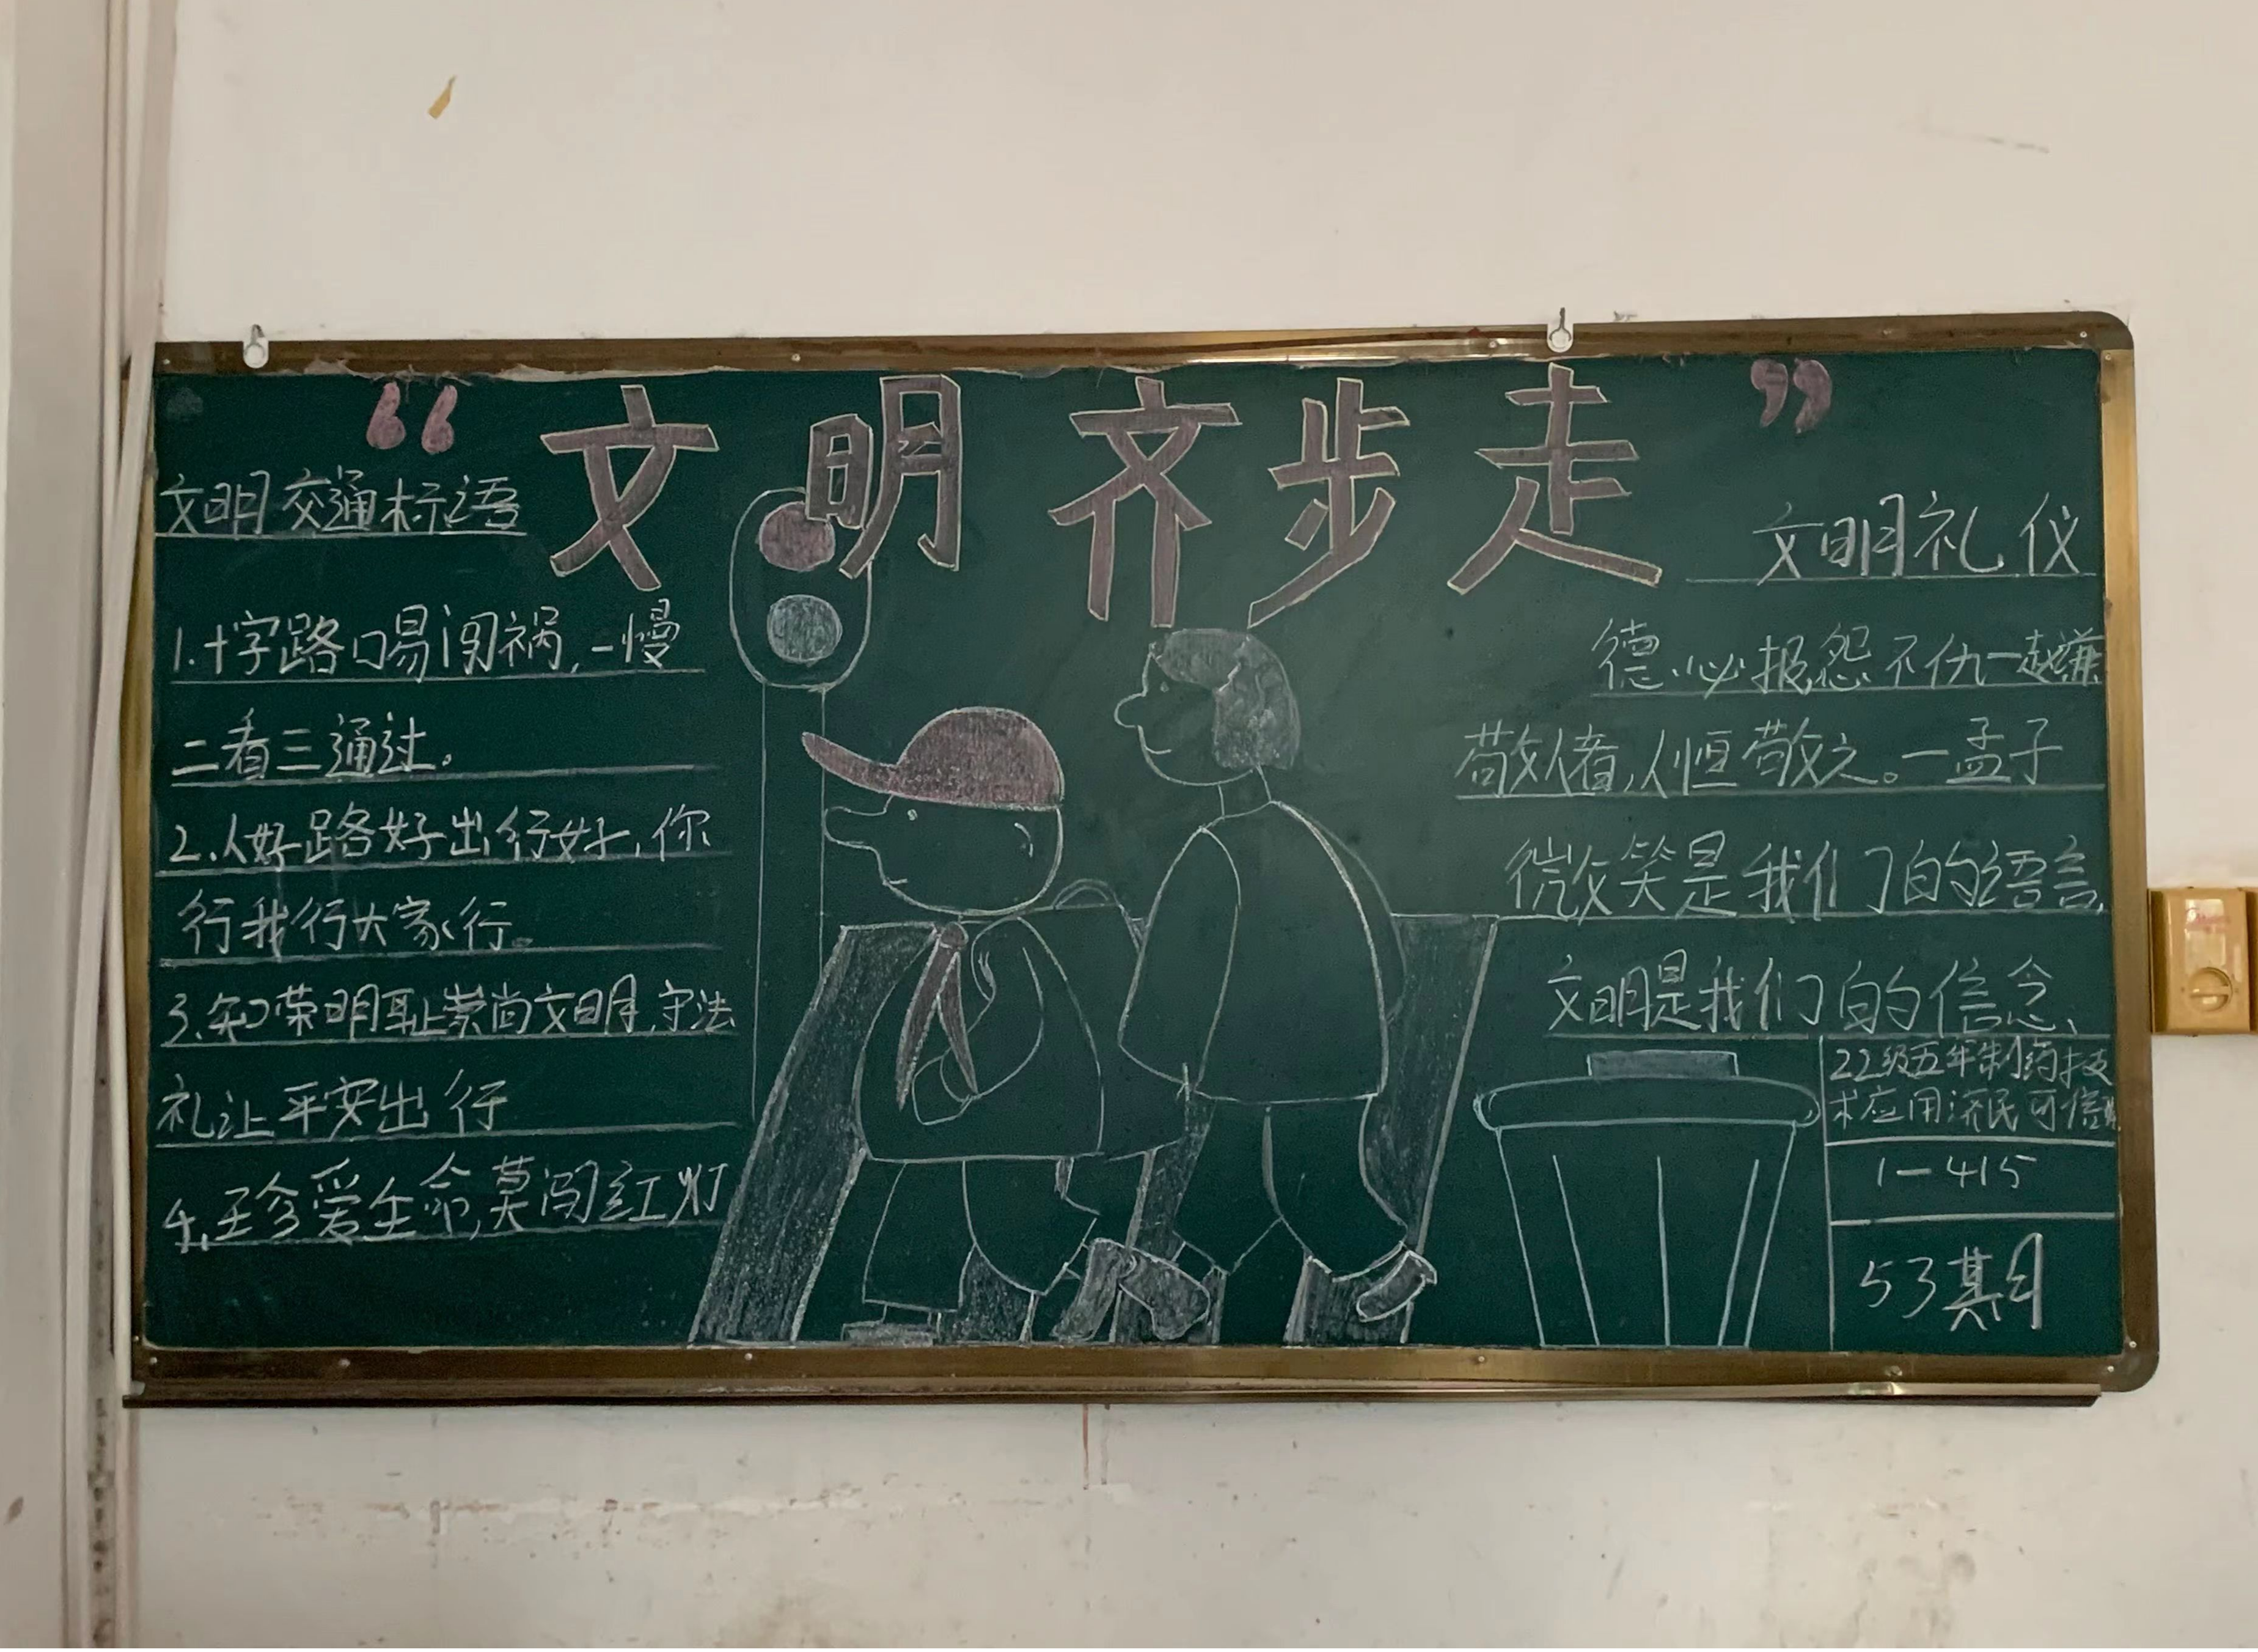 “文明齐步走”
文明交通标语
1.十字路口易闯祸,一慢
二看三通过。
2.人好路好出行好,你
行我行大家行。
3.知荣明耻崇尚文明,守法
礼让平安出行
4.珍爱生命,莫闯红灯
文明礼仪
德必报怨不仇—赵谦
敬人者,人恒敬之。—孟子
微笑是我们的语言,
文明是我们的信念、
22级五年制药技
术应用济民可信
1—415
53期